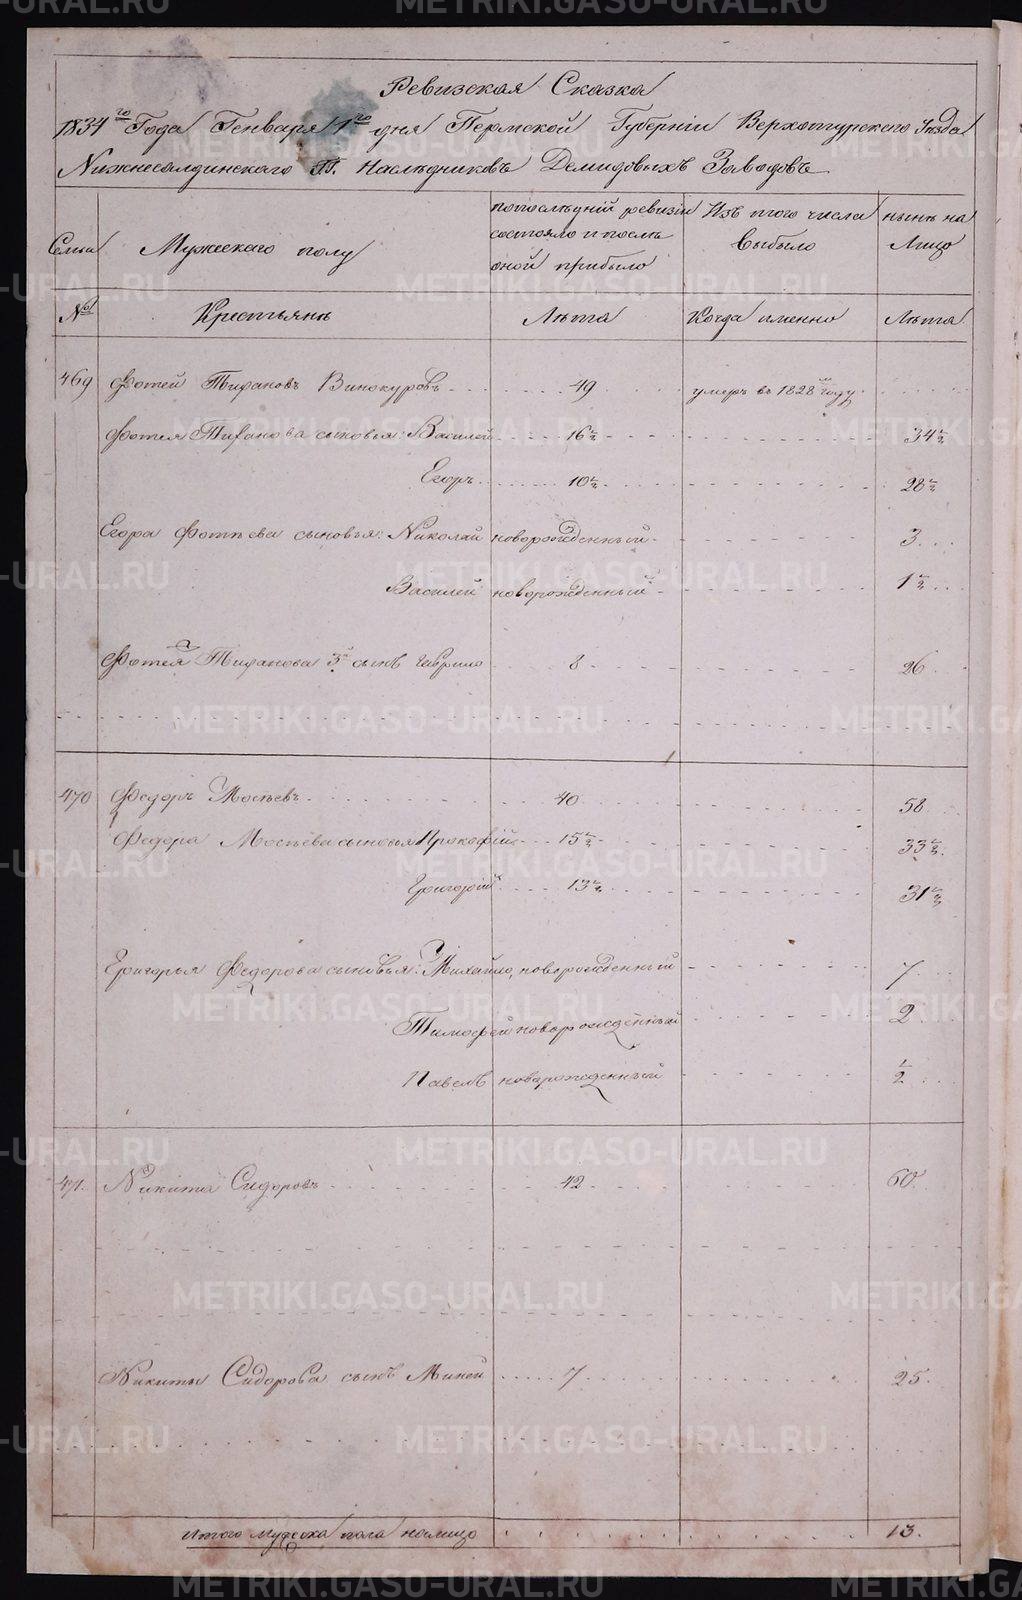 Ревизская Сказка
1834го Года Генваря 1го дня Пермской Губернiи Верхотурскаго Уезда
Нижнесалдинскаго Гг. Наслѣдниковъ Демидовыхъ Заводовъ
Семьи
Мужескаго полу
попослѣдней ревизiи состояло и послѣ оной прибыло
Изъ того числа выбыло
нынѣ на Лицо
№
Крестьянъ
Лѣта
Когда именно
Лѣта
469 Фотей Тифановъ Винокуровъ 49 умеръ въ 1828 году
Фотея Тифанова сыновья: Василей 16 1/2 34 1/2
Егоръ 10 1/2 28 1/2
Егора Фотѣева сыновья: Николай новорожденный 3
Василей новорожденный 1 1/2
Фотея Тифанова 3й сынъ Гаврило 8 26
470 Федоръ Мосѣевъ 40 58
Федора Мосѣева сыновья Прокофiй 15 1/2 33 1/2
Григорiй 13 1/2 31 1/2
Григорья Федорова сыновья: Михайло новорожденный 7
Тимофей новорожденный 2
Павелъ новорожденный 1/2
471 Никита Сидоровъ 42 60
Никиты Сидорова сынъ Миней 7 25
Итого мужеска пола налицо 13.
METRIKI.GASO-URAL.RU